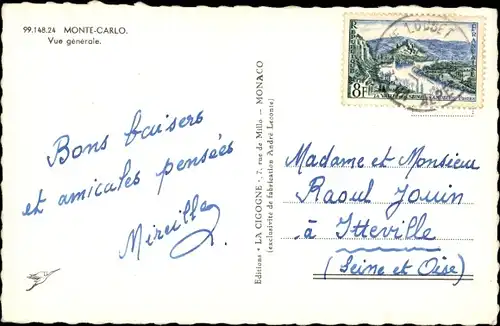 99.148.24 MONTE-CARLO.
Vue générale.
Bons baisers
et amicales pensées
Mireille
Editions - LA CIGOGNE - 7, rue de Millo - MONACO
(exclusivité de fabrication André Leconte)
8F
Madame et Monsieur
Raoul Jouin
à Itteville
(Seine et Oise)